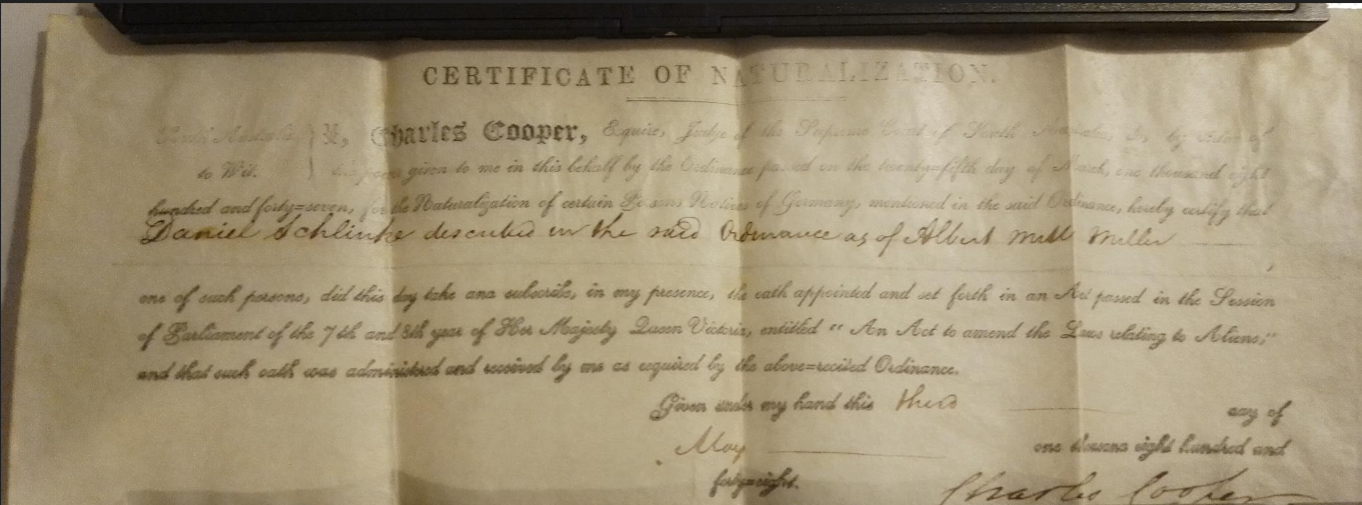 CERTIFICATE OF NATURALIZATION.
South Australia, } I, Charles Cooper, Esquire, Judge of the Supreme Court of South Australia, do, by virtue of
to Wit. } the power given to me in this behalf by the Ordinance passed on the twenty=fifth day of March, one thousand eight
hundred and forty=seven, for the Naturalization of certain Persons Natives of Germany, mentioned in the said Ordinance, hereby certify that
Daniel Schlinke described in the said Ordinance as of Albert Mill Miller
one of such persons, did this day take and subscribe, in my presence, the oath appointed and set forth in an Act passed in the Session
of Parliament of the 7th and 8th year of Her Majesty Queen Victoria, entitled "An Act to amend the Laws relating to Aliens;"
and that such oath was administered and received by me as required by the above=recited Ordinance.
Given under my hand this third day of
May one thousand eight hundred and
forty=eight.
Charles Cooper